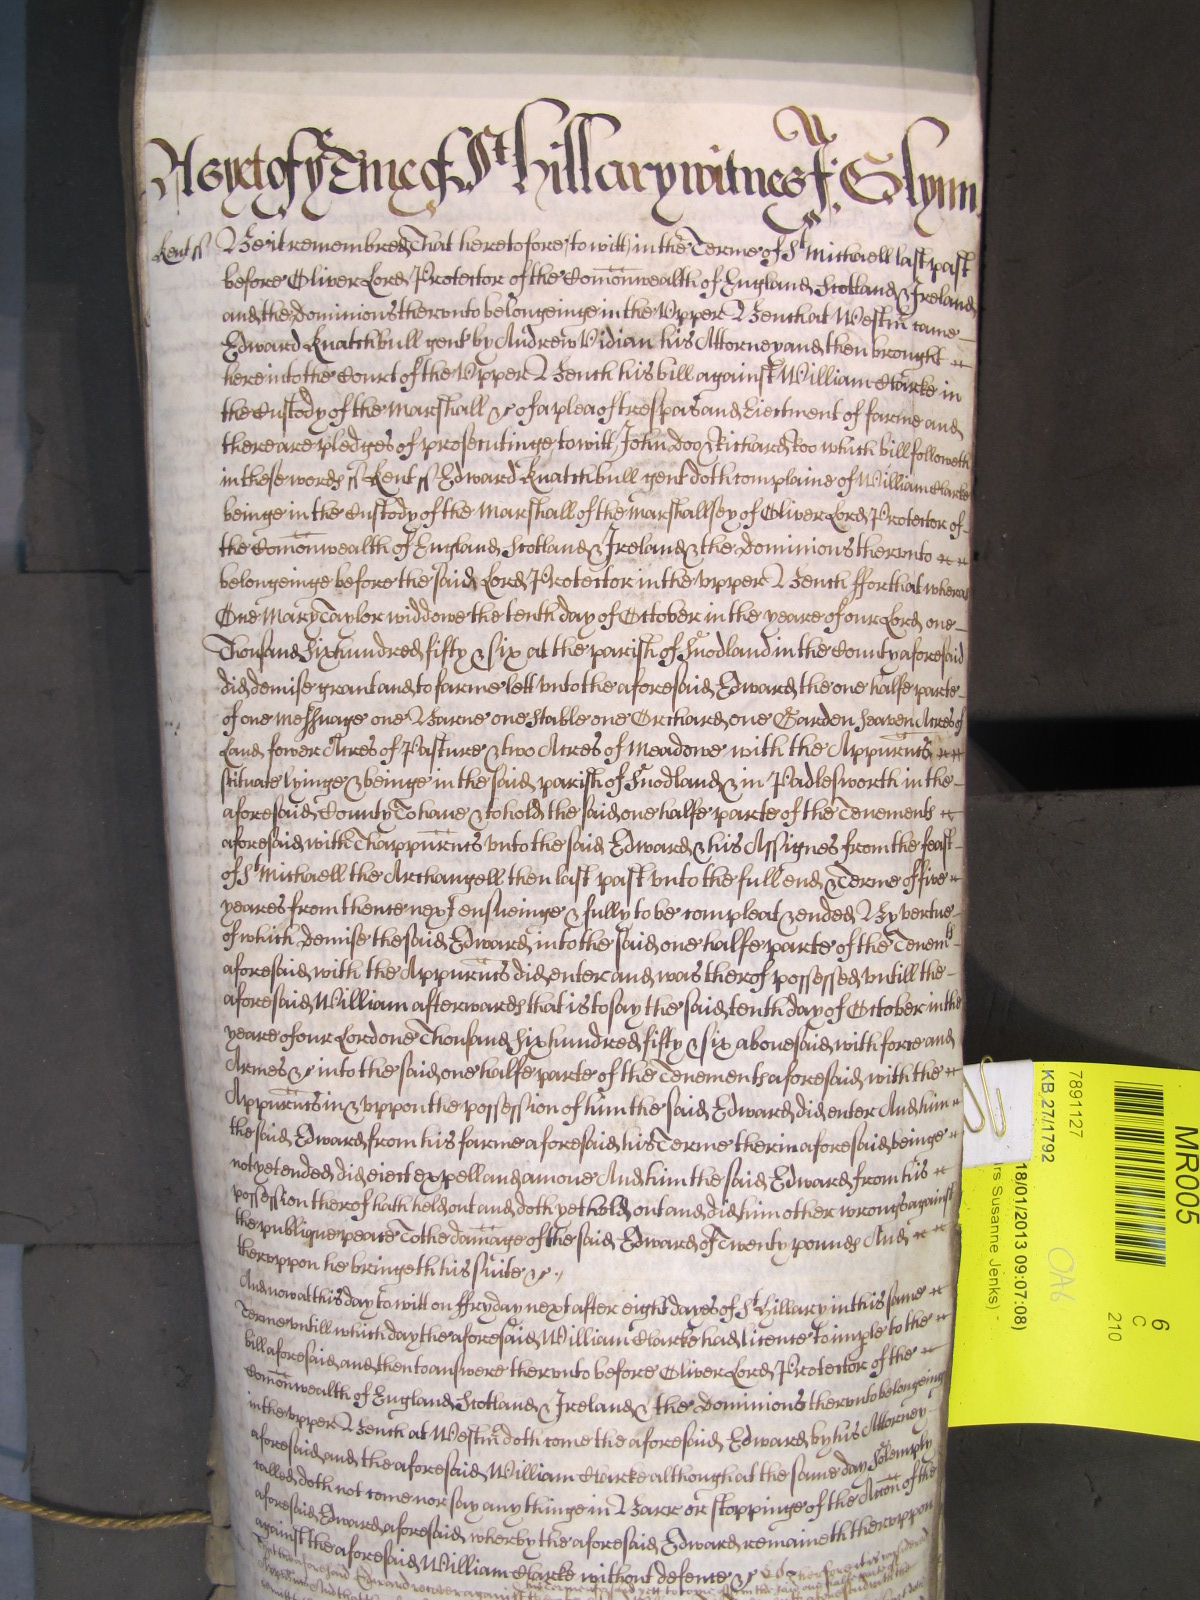 As yet of ye Tme of St Hillary witnes J: Glynn
Kent ss Be it remembred That heretofore, to witt, in the Terme of St Michaell last past
before Oliver Lord Protector of the Com̄onwealth of England Scotland & Ireland
and the dominions therunto belongeinge in the Upper Bench at Westm̄ came
Edward Knatchbull gent by Andrew Vidian his Attorney and then brought
here into the Court of the Upper Bench his bill against William Clarke in
the Custody of the Marshall &c of a plea of trespas and Eiectment of farme and
there are pledges of prosecutinge to witt, John Doo & Richard Roo which bill followeth
in these words ss Kent ss Edward Knatchbull gent doth complaine of William Clarke
beinge in the Custody of the Marshall of the Marshallsey of Oliver Lord Protector of
the Com̄onwealth of England Scotland & Ireland & the dominions therunto
belongeinge before the said Lord Protector in the upper Bench ffor that wheras
One Mary Taylor widdowe the tenth day of October in the yeare of our Lord one
Thousand Six hundred fifty & six at the parish of Snodland in the County aforesaid
did demise grant and to farme lett unto the aforesaid Edward the one halfe parte
of one messuage one Barne one Stable one Orchard one Garden Seaven Acres of
Land fower Acres of Pasture & two Acres of Meadowe with the Appurten̄ts
scituate lyinge & beinge in the said parish of Snodland & in Padlesworth in the
aforesaid County To have & to hold the said one halfe parte of the Tenements
aforesaid with Thappurten̄ts unto the said Edward & his Assignes from the feast
of St Michaell the Archangell then last past unto the full end & Terme of five
yeares from thence next ensueinge & fully to be compleat & ended By vertue
of which demise the said Edward into the said one halfe parte of the Tenemts
aforesaid with the Appurten̄ts did enter and was therof possessed untill the
aforesaid William afterwards that is to say the said tenth day of October in the
yeare of our Lord one Thousand Six hundred fifty & six abovesaid with force and
Armes &c into the said one halfe parte of the Tenements aforesaid with the
Appurten̄ts in & uppon the possession of him the said Edward did enter And him
the said Edward from his farme aforesaid his Terme therin aforesaid beinge
not yet ended did eiect expell and amove And him the said Edward from his
possession therof hath held out and doth yet hold out and did him other wrongs against
the publique peace To the dam̄age of the said Edward of Twenty pounds And
theruppon he bringeth his suite &c.
And now at this day to witt on ffryday next after eight dayes of St Hillary in this same
Terme untill which day the aforesaid William Clarke had licence to imple to the
bill aforesaid and then to answere therunto before Oliver Lord Protector of the
Com̄onwealth of England Scotland & Ireland & the Dominions therunto belongeing
in the upper Bench at Westm̄ doth come the aforesaid Edward by his Attorney
aforesaid and the aforesaid William Clarke although at the same day Solemply
called doth not come nor say any thinge in Barr or stoppinge of the Acc̄on of the
aforesaid Edward aforesaid wherby the aforesaid Edward remaineth theruppon
against the aforesaid William Clarke without defence &c
MR005
6
C
210
7891127
KB 27/1792
18/01/2013 09:07:08)
rs Susanne Jenks)